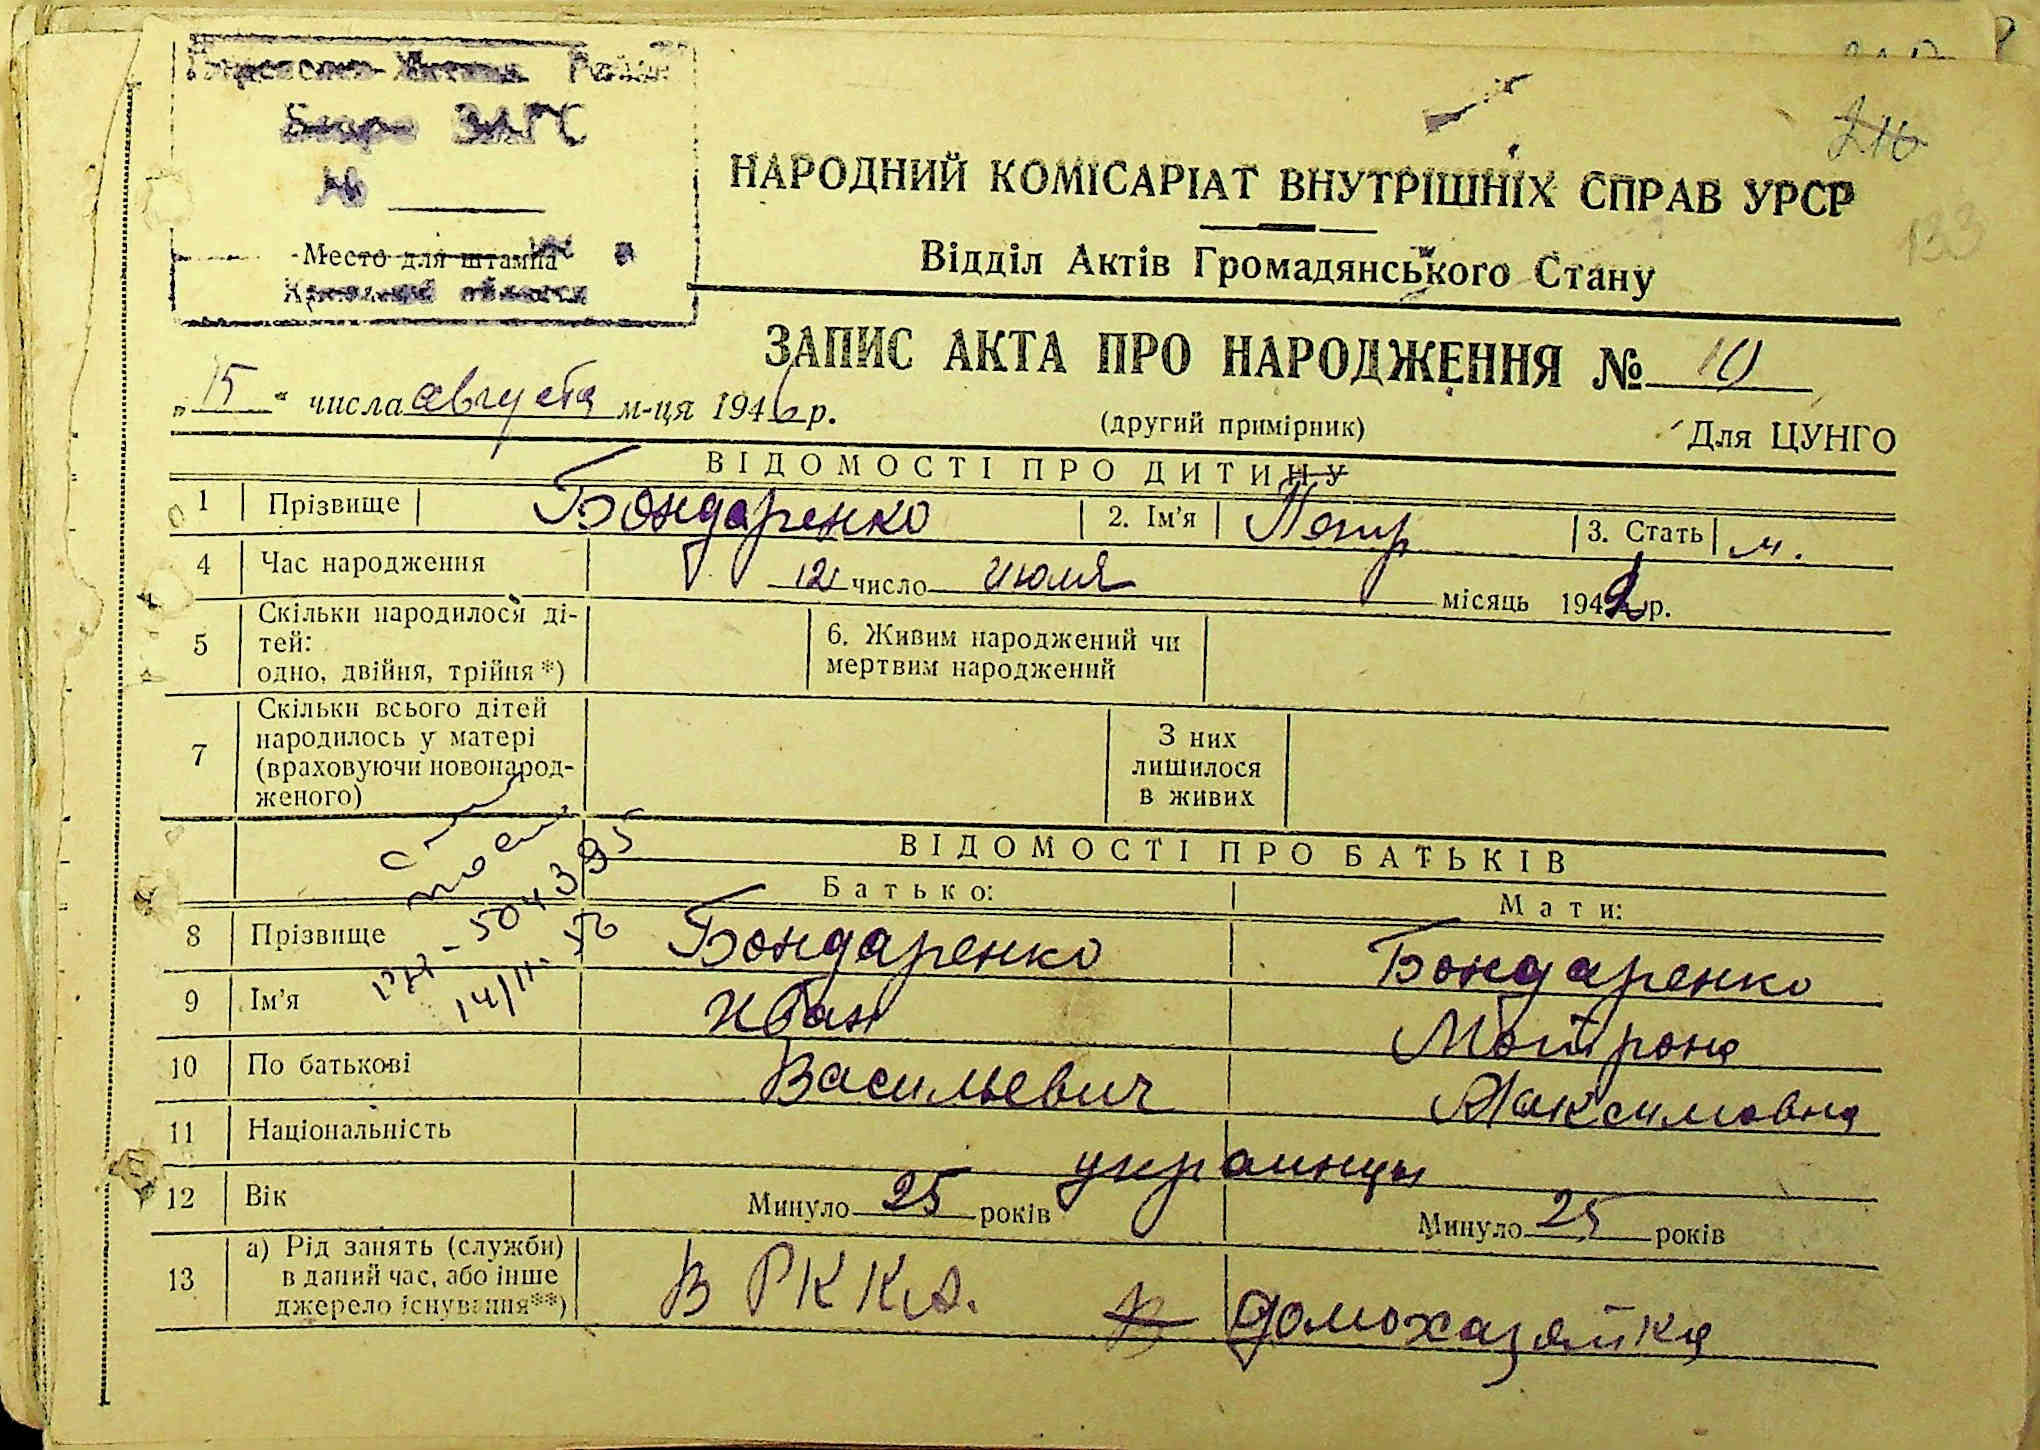 Бюро ЗАГС
№
Место для штампа
НАРОДНИЙ КОМІСАРІАТ ВНУТРІШНІХ СПРАВ УРСР
Відділ Актів Громадянського Стану
133
ЗАПИС АКТА ПРО НАРОДЖЕННЯ № 10
„15“ числа августа м-ця 194 р.
(другий примірник)
Для ЦУНГО
ВІДОМОСТІ ПРО ДИТИНУ
1 Прізвище Бондаренко 2. Ім'я Петр 3. Стать м.
4 Час народження 12 число июля місяць 1942 р.
5 Скільки народилося ді-
тей:
одно, двійня, трійня *)
6. Живим народжений чи
мертвим народжений
7 Скільки всього дітей
народилось у матері
(враховуючи новонарод-
женого)
З них
лишилося
в живих
ВІДОМОСТІ ПРО БАТЬКІВ
Батько: Мати:
8 Прізвище Бондаренко Бондаренко
9 Ім'я Иван Мотрона
10 По батькові Васильевич Максимовна
11 Національність украинцы
12 Вік Минуло 25 років Минуло 25 років
13 а) Рід занять (служби)
в даний час, або інше
джерело існування**)
В РККА. домохазяйка
504395